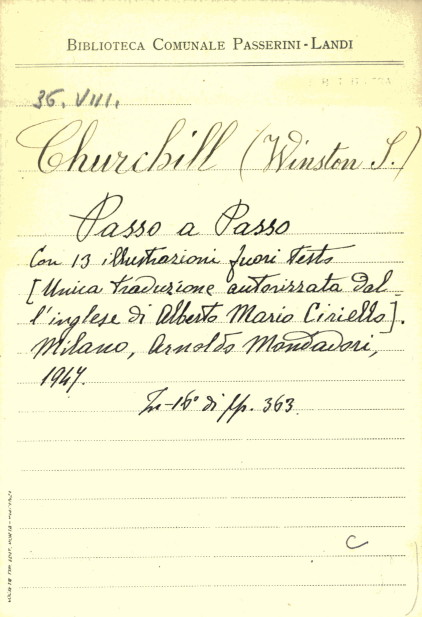 BIBLIOTECA COMUNALE PASSERINI-LANDI
36. VIII.
Churchill (Winston S.)
Passo a Passo
Con 13 illustrazioni fuori testo
[Unica traduzione autorizzata dal
l'inglese di Alberto Mario Ciriello].
Milano, Arnoldo Mondadori,
1947.
In-16° di pp. 363.
C